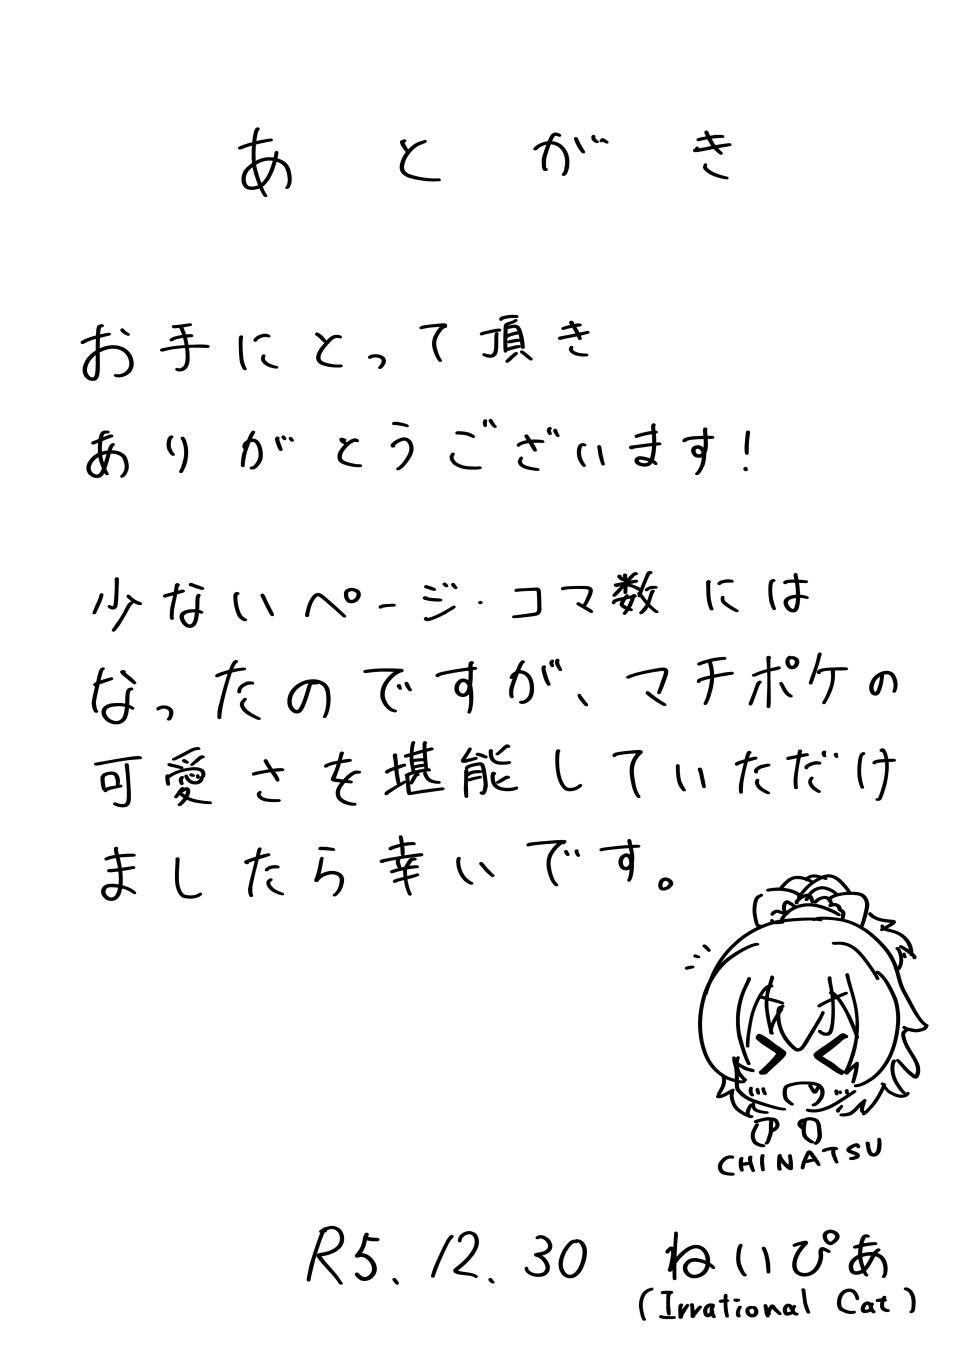 あとがき
お手にとって頂き
ありがとうございます!
少ないページ・コマ数には
なったのですが、マチポケの
可愛さを堪能していただけ
ましたら幸いです。
CHINATSU
R5.12.30 ねいぴあ
(Irrational Cat)